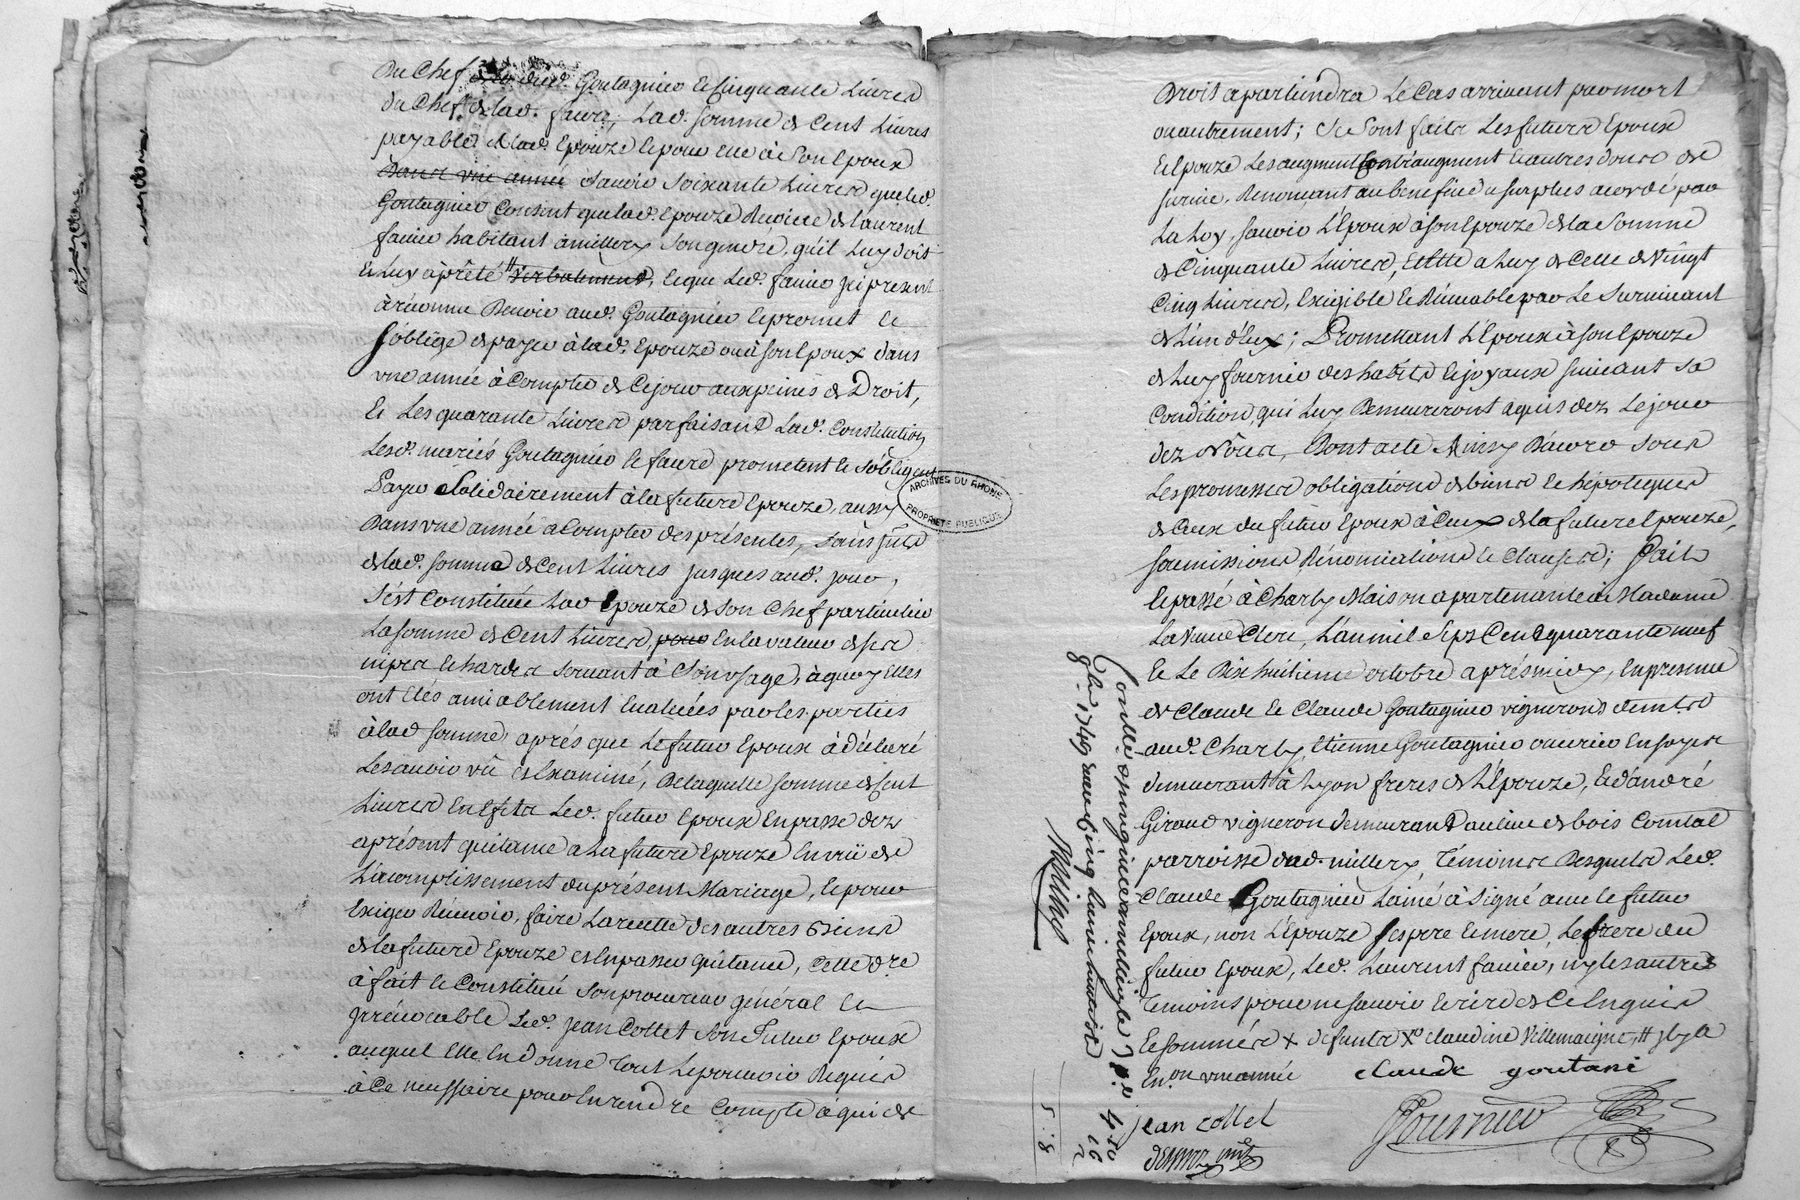 Du Chef dud. Goutagnieu et Cinquante Livres
du Chef de lad. faure, Lad. somme de Cent Livres
payable à lad. Epouze et pour elle à son Epoux
Dans une année sauoir soixante Livres que led.
Goutagnieu Consent que lad. Epouze Reçoive de Laurent
favier habitant à millery son gendre, qu'il luy doit
de luy à prêté # verbalement, et que led. favier ici present
à reconnu Devoir aud. Goutagnieu et promet et
s'oblige de payer à lad. Epouze ou à son Epoux dans
une année à Compter de Ce jour aux peines de Droit,
Et Les quarante Livres parfaisant Lad. Constitution
Lesd. mariés Goutagnieu et faure prometent et s'obligent
Payer Solidairement à la future Epouze, aussy
Dans une année à Compter des présentes, sans jnts
de lad. somme de Cent Livres jusques aud. jour,
S'est Constituée Lad. Epouze de son Chef particulier
La somme de Cent Livres, pour En la valeur de ses
nipes et hardes servant à son usage, à quoy Elles
ont étés amiablement Evaluées par les parties
à lad. somme, après que Le futur Epoux à déclaré
Les avoir vû et Examiné, De laquelle somme de Cent
Livres En Efets Led. futur Epoux En passe dez
aprésent quitance a La future Epouze En vüe de
L'accomplissement du présent Mariage, Et pour
Exiger Recevoir, faire La recette des autres Biens
de la future Epouze et En passer quitance, Cette dre
à fait et Constitué son procureur général et
jrrévocable Led. jean Collet son Futur Epoux
auquel Elle En donne Tout Le pouvoir Requis
à Ce necessaire pour En rendre Compte à qui de
ARCHIVES DU RHONE
PROPRIETE PUBLIQUE
Droit apartiendra Le Cas arrivant par mort
ou autrement; Se sont faits Les futurs Epoux
Et Epouze Les augment Contr'augment et autres dons de
survie, Renonçant au benefice du surplus acordé par
La Loy, sauoir L'Epoux à son Epouze de la somme
de Cinquante Livres, Et Elle a Luy de Celle de Vingt
Cinq Livres, Exigible et Réversable par Le Survivant
de L'un d'Eux; Promettant L'Epoux à son Epouze
de Luy fournir des habits et joyaux suivant sa
Condition, qui Luy Demeureront aquis dez Le jour
dez Nôces, Dont acte Ainsy D'acord sous
Les promesses obligations de biens et hipoteques
de Ceux du futur Epoux à Ceux de la future Epouze,
soumissions Rénonciations et Clauses; Fait
et passé à Charly Maison apartenante à Madame
La Veuve Cleri, L'an mil Sept Cent quarante neuf
Et Le Dix huitieme octobre aprés midy, En presence
de Claude et Claude Goutagnieu vignerons demts
aud. Charly Etienne Goutagnieu ouvrier En soyes
demeurant à Lyon freres de L'Epouze, Et d'andré
Giraud vigneron demeurant au lieu de bois Comtal
parroisse dud. millery Témoins Desquels Led.
Claude Goutagnieu L'ainé à Signé avec le futur
Epoux, non L'Epouze ses pere et mere, Le frere du
futur Epoux, Led. Laurent favier, ny les autres
Temoins pour ne savoir Ecrire de Ce Enquis
et sommés + defunte x claudine Villemaigne, # jl y a
En.on une année claude goutani
jean Collet
Fournieu
Conllé à
8bre 1749
Millet